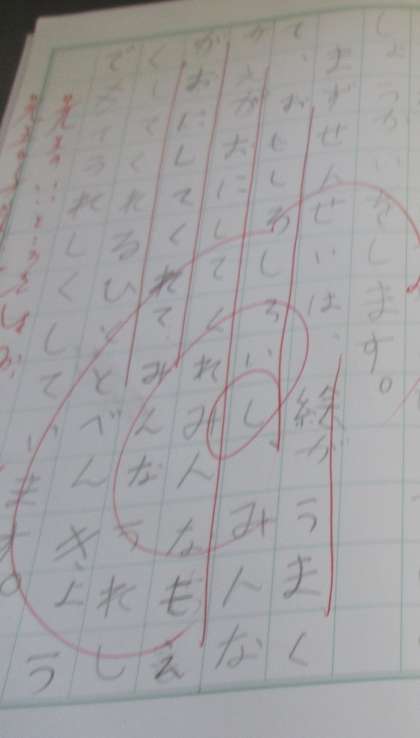 しょうかいをします。
まずせんせいは、絵がうまく
て、おもしろいし、みんな
がえがおにしてくれみんなもえ
がおにしてくれてみんなうれし
くしてくれるひととべんきょう
できてうれしくしています。